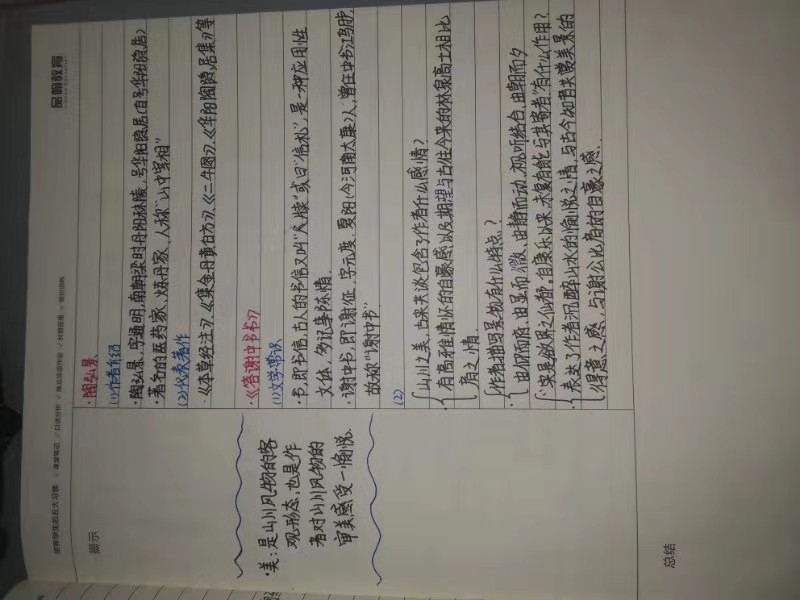 品翰教育
培养学生的五大习惯 √课堂笔记 √口语分析 √独立完成作业 √对错反馈 √限时训练
提示
·陶弘景
(1)作者介绍
·陶弘景,字通明,南朝梁时丹阳秣陵,号华阳隐居(自号华阳隐居)
·著名的医药家、炼丹家,人称"山中宰相"
(2)代表著作
《本草经注》、《集金丹黄白方》、《二牛图》、《华阳陶隐居集》等
·《答谢中书书》
(1)文学常识
·书,即书信,古人的书信又叫"尺牍"或曰"信札",是一种应用性
文体,多记事陈情
·谢中书,即谢征,字元度,夏阳(今河南太康)人,曾任中书鸿胪,
故称"谢中书"
(2)
山川之美,古来共谈包含了作者什么感情?
有高雅情怀的自豪感以及期望与古往今来的林泉高士相比
肩之情
作者描写景物有什么特点?
由仰而府,由显而微,由静而动,视听结合,由朝而夕
"实是欲界之仙都,自康乐以来,未复有能与其奇者"有什么作用?
表达了作者沉醉山水的愉悦之情,与古今知音共赏美景的
得意之感,与谢公比肩的自豪之感.
·美:是山川风物的客
观形态,也是作
者对山川风物的
审美感受一愉悦.
总结